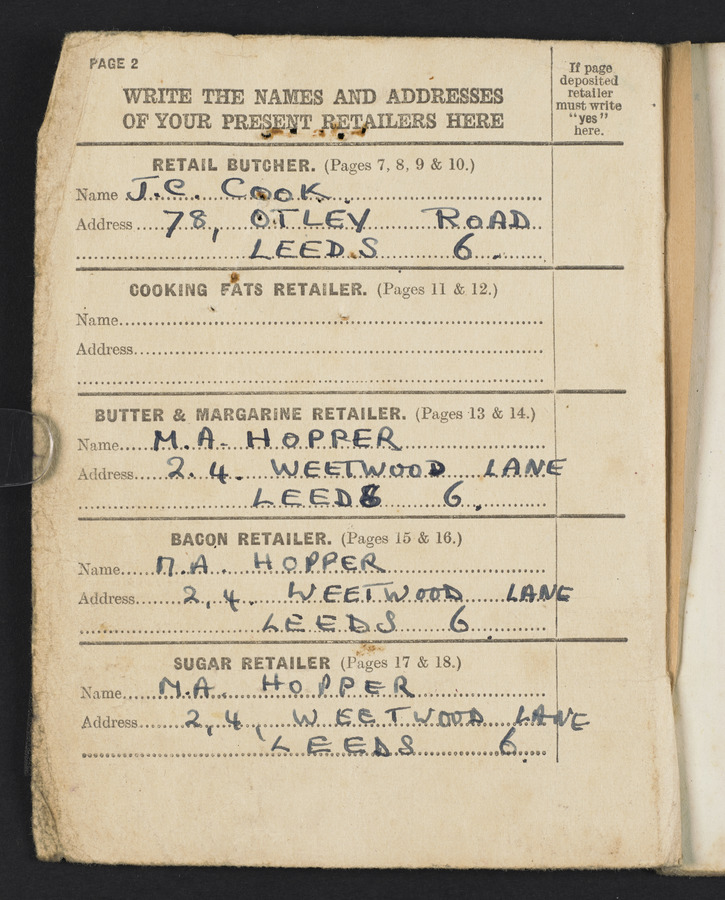 PAGE 2
WRITE THE NAMES AND ADDRESSES
OF YOUR PRESENT RETAILERS HERE
If page
deposited
retailer
must write
"yes"
here.
RETAIL BUTCHER. (Pages 7, 8, 9 & 10.)
Name J.C. COOK.
Address 78, OTLEY ROAD
LEEDS 6.
COOKING FATS RETAILER. (Pages 11 & 12.)
Name
Address
BUTTER & MARGARINE RETAILER. (Pages 13 & 14.)
Name M.A. HOPPER
Address 2.4. WEETWOOD LANE
LEEDS 6.
BACON RETAILER. (Pages 15 & 16.)
Name M.A. HOPPER
Address 2,4. WEETWOOD LANE
LEEDS 6.
SUGAR RETAILER (Pages 17 & 18.)
Name M.A. HOPPER
Address 2,4, WEETWOOD LANE
LEEDS 6.